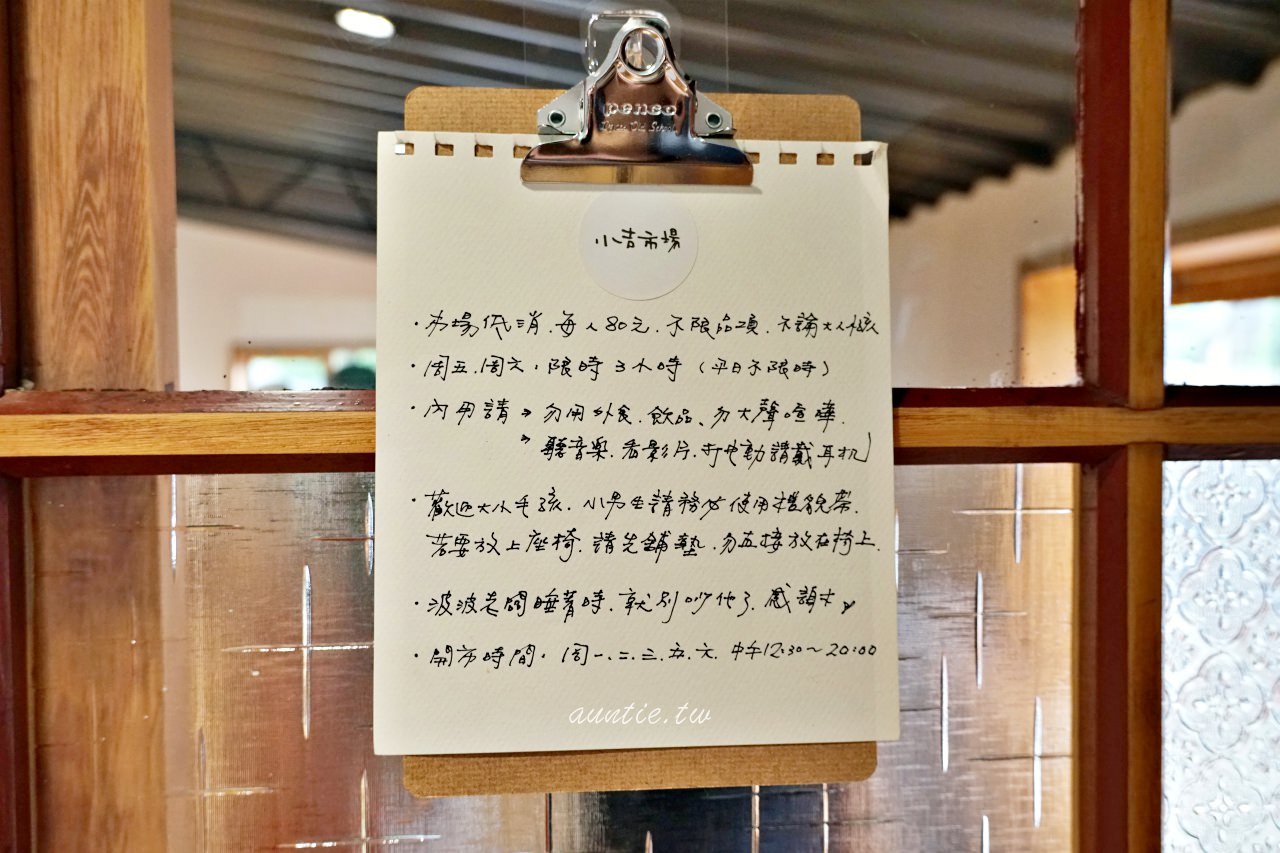 penco
小吉市場
・市場低消.每人80元.不限品項.不論大人小孩
・周五.周六,限時3小時(平日不限時)
・內用請→勿用外食.飲品、勿大聲喧嘩.
→聽音樂.看影片.打電動請戴耳机
・歡迎大小毛孩.小男生請務必使用禮貌帶.
若要放上座椅.請先鋪墊.勿直接放在椅上.
・波波老闆睡著時.就別吵他了.感謝
・開市時間.周一.二.三.五.六.中午12:30～20:00
auntie.tw